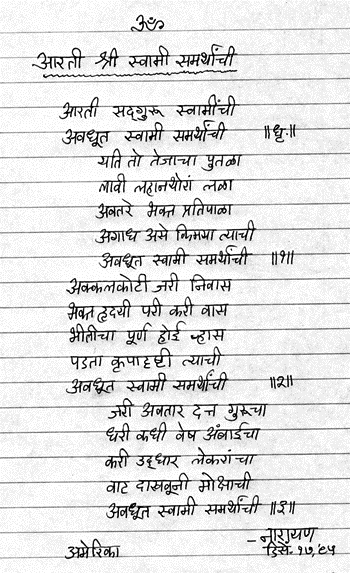 ॐ
आरती श्री स्वामी समर्थांची
आरती सद्गुरू स्वामींची
अवधूत स्वामी समर्थांची ॥धृ.॥
यति तो तेजाचा पुतळा
लावी लहानथोरां लळा
अवतरे भक्त प्रतिपाळा
अगाध असे किमया त्याची
अवधूत स्वामी समर्थांची ॥१॥
अक्कलकोटी जरी निवास
भक्त हृदयी परी करी वास
भीतीचा पूर्ण होई ऱ्हास
पडता कृपादृष्टी त्याची
अवधूत स्वामी समर्थांची ॥२॥
जरी अवतार दत्त गुरूचा
धरी कधी वेष अंबाईचा
करी उद्धार लेकरांचा
वाट दाखवूनी मोक्षाची
अवधूत स्वामी समर्थांची ॥३॥
-नारायण
अमेरिका डिसें. १७,'९५